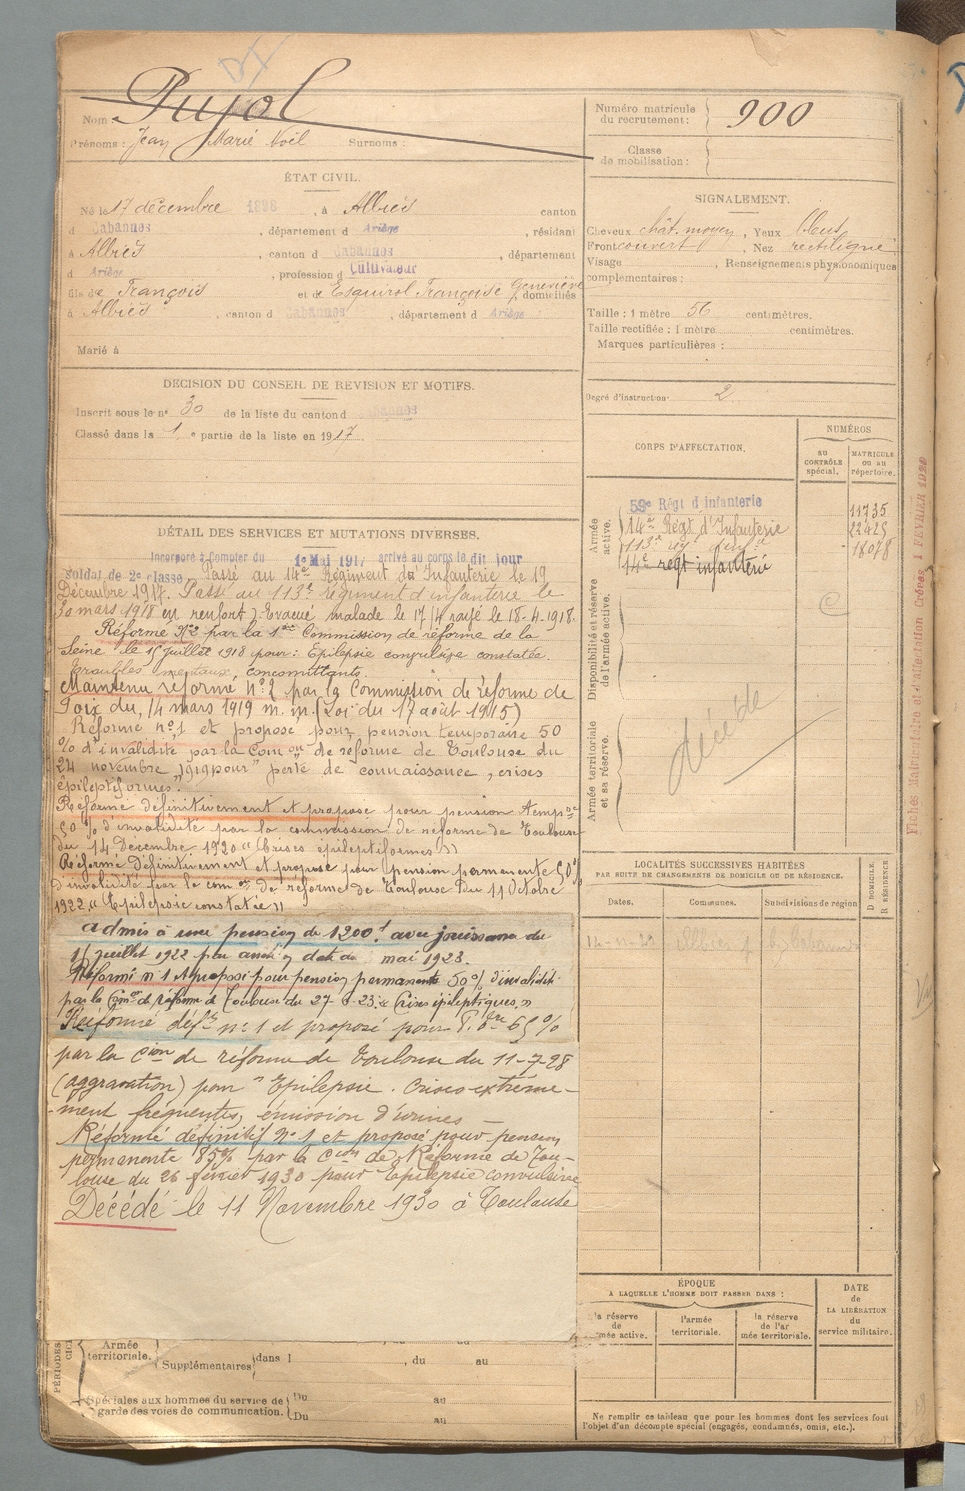 Nom : Pujol
Prénoms : Jean Marie Noël Surnoms :
Numéro matricule du recrutement : 900
Classe de mobilisation :
ÉTAT CIVIL.
Né le 17 décembre 1898, à Albiès canton
d Cabannes, département d Ariège, résidant
à Albiès, canton d Cabannes, département
d Ariège, profession d Cultivateur
fils de François et de Esquirol Françoise Geneviève, domiciliés
à Albiès, canton d Cabannes, département d Ariège
Marié à
SIGNALEMENT.
Cheveux chât. moyen, Yeux bleus
Front couvert, Nez rectiligne
Visage , Renseignements physionomiques
complémentaires :
Taille : 1 mètre 56 centimètres.
Taille rectifiée : 1 mètre centimètres.
Marques particulières :
Degré d'instruction 2
DECISION DU CONSEIL DE REVISION ET MOTIFS.
Inscrit sous le n° 30 de la liste du canton d Cabannes
Classé dans la 1 e partie de la liste en 1917.
CORPS D'AFFECTATION.
NUMÉROS
AU CONTRÔLE spécial.
MATRICULE ou au répertoire.
Armée active.
59e Régt d'infanterie 11735
14e Régt d'Infanterie 22425
113e 18078
14e regt infanterie
Disponibilité et réserve de l'armée active.
Armée territoriale et sa réserve.
décédé
DÉTAIL DES SERVICES ET MUTATIONS DIVERSES.
Incorporé à Compter du 1e Mai 1917 arrivé au corps le dit jour
soldat de 2e classe. Passé au 14e Régiment d'Infanterie le 19
Décembre 1917. Passé au 113e régiment d'infanterie le
30 mars 1918 en renfort). Evacué malade le 17/4 rayé le 18-4-1918.
Réformé N°2 par la 1ère Commission de réforme de la
Seine le 15 juillet 1918 pour : Epilepsie convulsive constatée.
troubles mentaux, concomittants.
Maintenu réformé n°2 par la Commission de réforme de
Foix du 14 mars 1919 m. m. (Loi du 17 août 1915)
Réformé n°1 et proposé pour pension temporaire 50
% d'invalidité par la Comon de réforme de Toulouse du
24 novembre 1919 pour "perte de connaissance, crises
épileptiformes.
Réformé définitivement et proposé pour pension tempre
50 % d'invalidité par la commission de réforme de Toulouse
du 14 Décembre 1920 "Crises epileptiformes"
Réformé définitivement et proposé pour pension permanente 50%
d'invalidité par la com on de réforme de Toulouse du 11 Octobre
1922. "Epilepsie constatée"
admis à une pension de 1200f avec jouissance du
15 juillet 1922 par arrêté en date du mai 1923.
Réformé n°1 et proposé pour pension permanente 50% d'invalidité
par la Con de réforme de Toulouse du 27-8-23 "Crises épileptiques"
Réformé déftf n°1 et proposé pour P. 65%
par la Cion de réforme de Toulouse du 11-7-28
(aggravation) pour "Epilepsie. Crises extrême-
-ment fréquentes, émission d'urines —
Réformé définitif N°1 et proposé pour pension
permanente 85% par la Cion de Réforme de Tou-
louse du 26 février 1930 pour Epilepsie convulsive
Décédé le 11 Novembre 1930 à Toulouse
LOCALITÉS SUCCESSIVES HABITÉES
PAR SUITE DE CHANGEMENTS DE DOMICILE OU DE RÉSIDENCE.
Dates. Communes. Subdivisions de région
D DOMICILE. R RÉSIDENCE
ÉPOQUE
À LAQUELLE L'HOMME DOIT PASSER DANS :
la réserve de mée active.
l'armée territoriale.
la réserve de l'ar mée territoriale.
DATE de LA LIBÉRATION du service militaire.
PÉRIODES
Armée territoriale. Supplémentaires dans l , du au
Spéciales aux hommes du service de Du au
garde des voies de communication. Du au
Ne remplir ce tableau que pour les hommes dont les services font
l'objet d'un décompte spécial (engagés, condamnés, omis, etc.).
Fiches Matriculaire et d'affectation Créées 1 FÉVRIER 1920